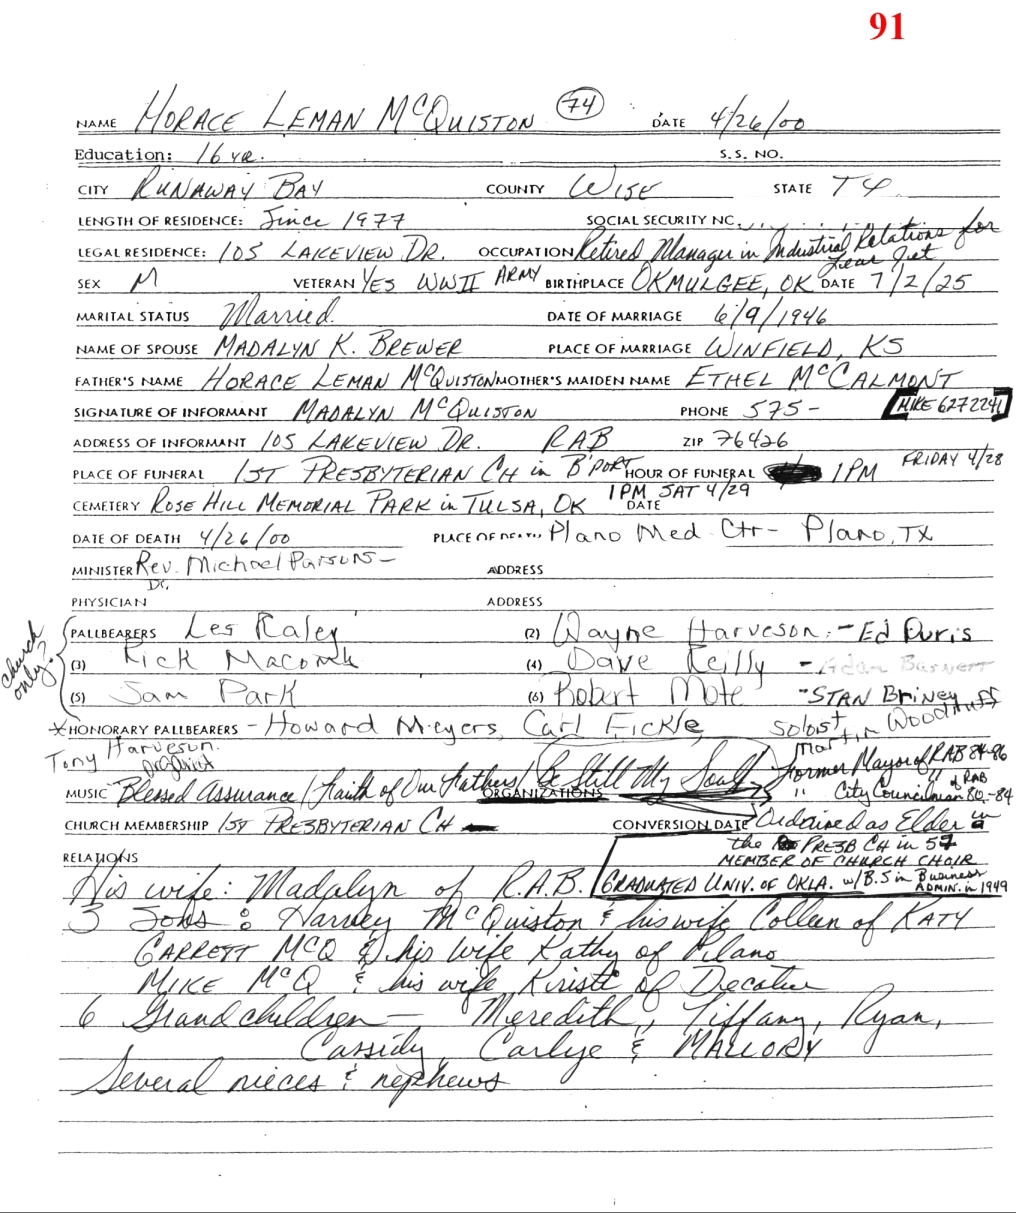 91
NAME HORACE LEMAN McQUISTON (74) DATE 4/26/00
Education: 16 yr. S.S. NO.
CITY RUNAWAY BAY COUNTY WISE STATE TX
LENGTH OF RESIDENCE: Since 1977 SOCIAL SECURITY NO.
LEGAL RESIDENCE: 105 LAKEVIEW DR. OCCUPATION Retired Manager in Industrial Relations for Lear Jet
SEX M VETERAN YES WWII ARMY BIRTHPLACE OKMULGEE, OK DATE 7/2/25
MARITAL STATUS Married DATE OF MARRIAGE 6/9/1946
NAME OF SPOUSE MADALYN K. BREWER PLACE OF MARRIAGE WINFIELD, KS
FATHER'S NAME HORACE LEMAN McQUISTON MOTHER'S MAIDEN NAME ETHEL McCALMONT
SIGNATURE OF INFORMANT MADALYN McQUISTON PHONE 575- [MIKE 6272241]
ADDRESS OF INFORMANT 105 LAKEVIEW DR. RAB ZIP 76426
PLACE OF FUNERAL 1ST PRESBYTERIAN CH in B'PORT HOUR OF FUNERAL 1PM FRIDAY 4/28
CEMETERY ROSE HILL MEMORIAL PARK in TULSA, OK DATE 1PM SAT 4/29
DATE OF DEATH 4/26/00 PLACE OF DEATH Plano Med Ctr - Plano, TX
MINISTER Rev. Michael Parsons - ADDRESS
Dr.
PHYSICIAN ADDRESS
church only?
PALLBEARERS Les Raley (2) Wayne Harveson - Ed Puris
(3) Rick Macomb (4) Dave Reilly - Adam Barnett
(5) Sam Park (6) Robert Mote - STAN Briney
*HONORARY PALLBEARERS - Howard Meyers, Carl Fickle, soloist Martin Woodruff
Tony Harveson Organist
MUSIC Blessed Assurance / Faith of Our Fathers / Be Still My Soul Former Mayor of RAB 84-86
ORGANIZATIONS " City Councilman " of RAB 80-84
CHURCH MEMBERSHIP 1ST PRESBYTERIAN CH CONVERSION DATE Ordained as Elder in
the PRESB CH in 57
RELATIONS MEMBER OF CHURCH CHOIR
His wife: Madalyn of R.A.B. GRADUATED UNIV. OF OKLA. w/B.S in Business ADMIN. in 1949
3 Sons: Harvey McQuiston & his wife Colleen of KATY
GARRETT McQ & his wife Kathy of Plano
MIKE McQ & his wife Kristi of Decatur
6 Grandchildren - Meredith, Tiffany, Ryan,
Cassidy, Carlye & MALLORY
Several nieces & nephews